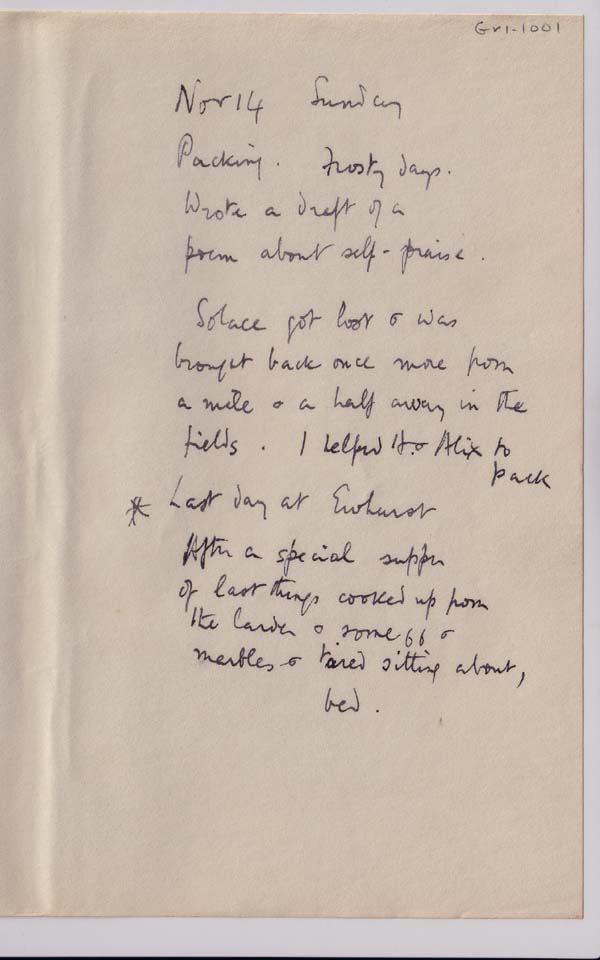 Gr1-1001
Nov 14 Sunday
Packing. Frosty days.
Wrote a draft of a
poem about self-praise.
Solace got lost & was
brought back once more from
a mile & a half away in the
fields. I helped H. & Alix to
pack
* Last day at Ewhurst
After a special supper
of last things cooked up from
the larder & some 66 &
marbles & tired sitting about,
bed.